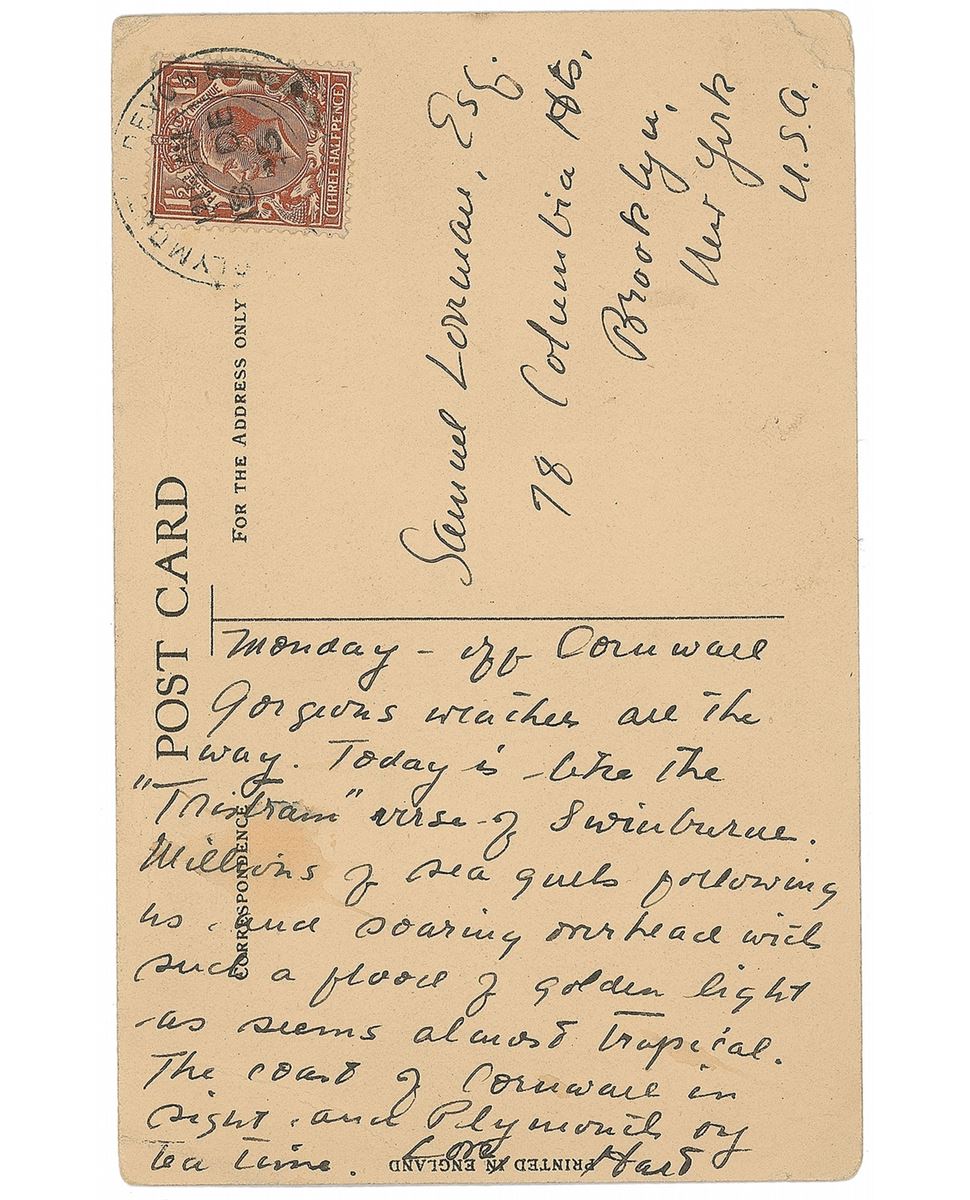 POST CARD
FOR THE ADDRESS ONLY
CORRESPONDENCE
1½
1½
POSTAGE
REVENUE
THREE HALFPENCE
PLYMO
DEV
DE
Samuel Loveman, Esq.
78 Columbia Hts,
Brooklyn,
New York
U.S.A.
Monday - off Cornwall
Gorgeous weather all the
way. Today is like the
"Tristram" verse of Swinburne.
Millions of sea gulls following
us and soaring overhead with
such a flood of golden light
as seems almost tropical.
The coast of Cornwall in
sight and Plymouth by
tea time. Love, Hart
PRINTED IN ENGLAND